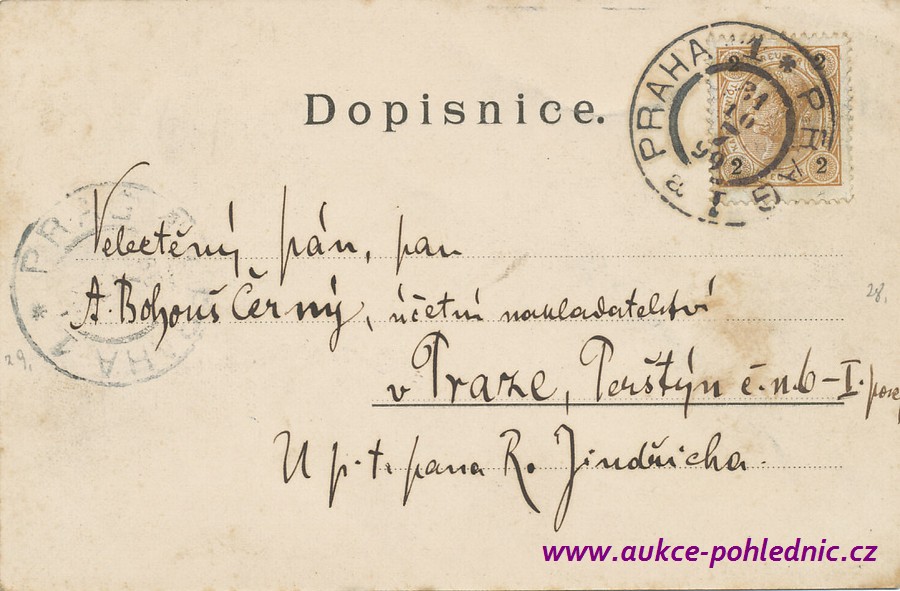 Dopisnice.
PRAHA 1 * PRAG 1 a
2 2
2 2
Velectěný pán, pan
A. Bohouš Černý, účetní nakladatelství
v Praze, Perštýn č. n. 6-I. posch
U p. t. pana R. Jindřicha.
28.
29.
PRAHA 1 *
www.aukce-pohlednic.cz